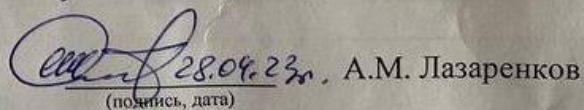 28.04.23г. А.М. Лазаренков
(подпись, дата)